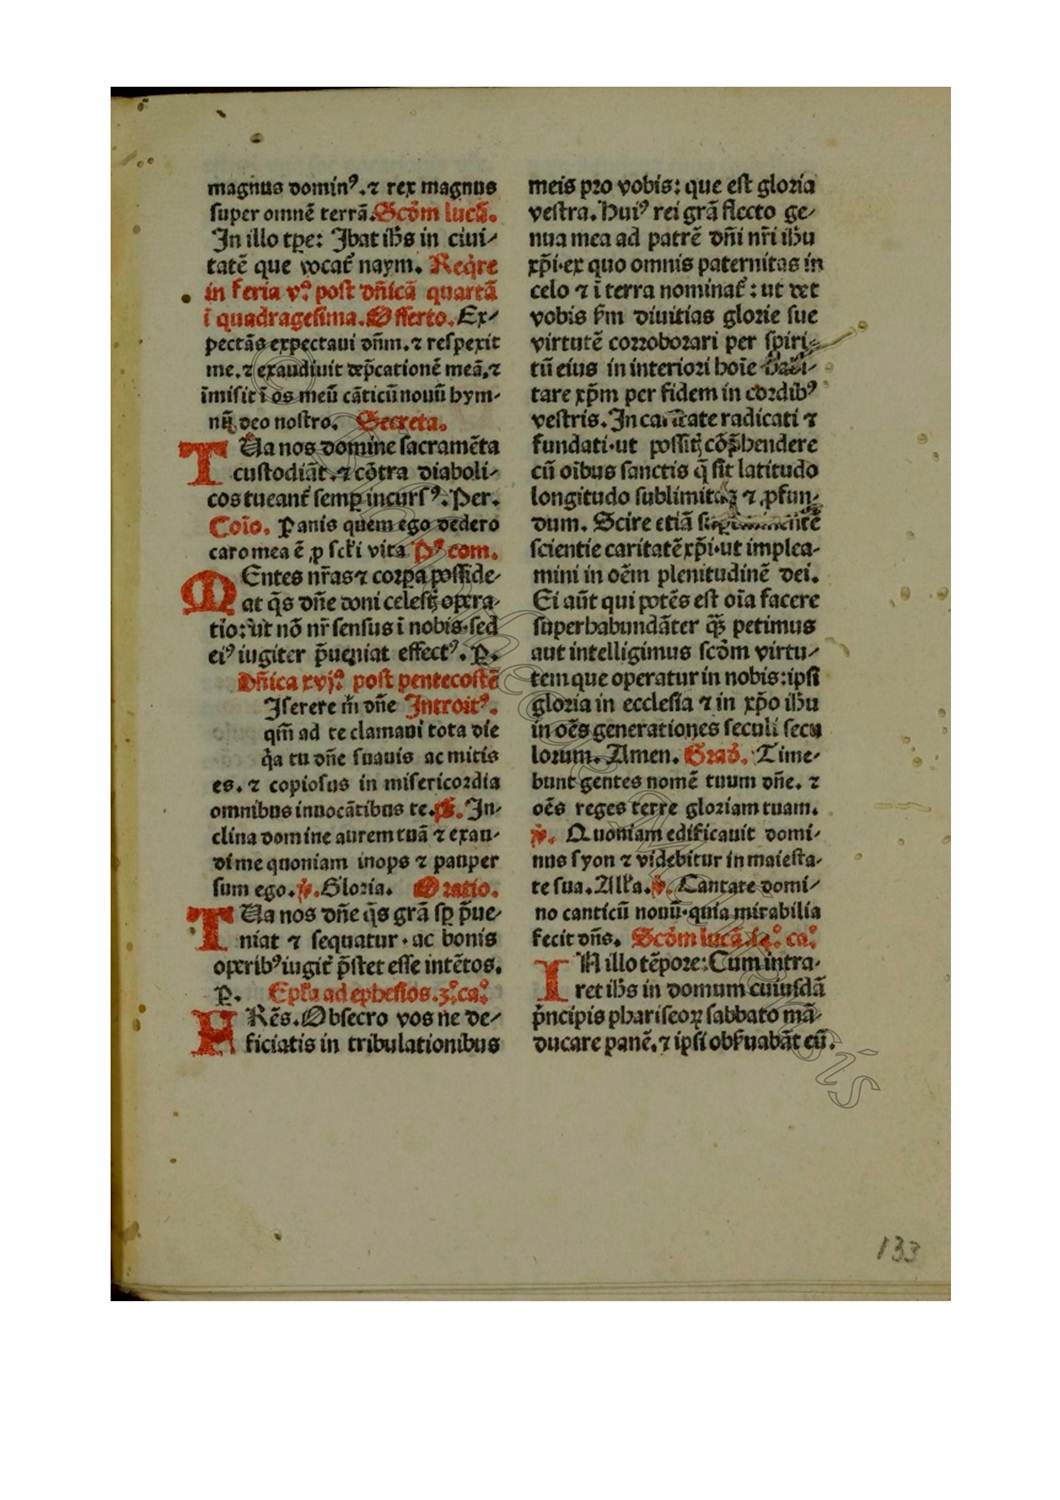 magnus domin⁹.⁊ rex magnus
super omnē terrā. Scd̄m lucā.
In illo tp̄e: Ibat ih̄s in ciui⸗
tatē que vocat᷑ naym. Req̄re
in feria v.ͣ post dn̄icā quartā
ī quadragesima. Offerto. Ex⸗
pectās expectaui dn̄m.⁊ respexit
me.⁊ exaudiuit dep̄cationē meā.⁊
īmisit ī os meū cāticū nouū hym-
nū deo nostro. Secreta.
TUa nos domine sacramēta
custodiāt.⁊ cōtra diaboli-
cos tueant᷑ semꝑ incurs⁹. Per.
Coīo. Panis quem ego dedero
caro mea ē ꝓ scl̄i vita P⁹ com.
MEntes nr̄as ⁊ corꝑa posside-
at q̄s dn̄e doni celestꝫ oꝑa-
tio: ut nō nr̄ sensus ī nobis·sed
ei⁹ iugiter p̄ueniat effect⁹. P.
Dn̄ica xvj.ͣ post pentecostē
Iserere m̄ dn̄e Introit⁹.
qm̄ ad te clamaui tota die
q̇a tu dn̄e suauis ac mitis
es.⁊ copiosus in misericordia
omnibus inuocātibus te. ps. In-
clina domine aurem tuā ⁊ exau-
di me quoniam inops ⁊ pauper
sum ego. ℣. Gloria. Oratio.
TUa nos dn̄e q̄s grā sp̄ p̄ue⸗
niat ⁊ sequatur·ac bonis
oꝑib⁹ iugit᷑ p̄stet esse intētos.
P. Epl̄a ad ephesios.3.ͦ ca.ͦ
FRēs. Obsecro vos ne de⸗
ficiatis in tribulationibus
meis pro vobis: que est gloria
vestra. Hui⁹ rei grā flecto ge⸗
nua mea ad patrē dn̄i nr̄i ih̄u
xp̄i·ex quo omnis paternitas in
celo ⁊ ī terra nominat᷑: ut det
vobis s̄m diuitias glorie sue
virtutē corroborari per spiri⸗
tū eius in interiori hoīe habi-
tare xp̄m per fidem in cordib⁹
vestris. In caritate radicati ⁊
fundati·ut possitꝫ cōp̄hendere
cū oībus sanctis q̄ sit latitudo
longitudo sublimitas ⁊ ꝓfun⸗
dum. Scire etiā
scientie caritatē xp̄i·ut implea-
mini in oēm plenitudinē dei.
Ei aūt qui potēs est oīa facere
superhabundāter q̄ꝫ petimus
aut intelligimus scd̄m virtu⸗
tem que operatur in nobis: ipsi
gloria in ecclesia ⁊ in xp̄o ih̄u
in oēs generationes seculi secu
lorum. Amen. Grad̄. Time-
bunt gentes nomē tuum dn̄e. ⁊
oēs reges terre gloriam tuam.
℣. Quoniam edificauit domi⸗
nus syon ⁊ videbitur in maiesta-
te sua. All'a. ℣. Cantate domi⸗
no canticū nouū·quia mirabilia
fecit dn̄s. Scd̄m lucā.14.ͦ ca.ͦ
IN illo tēpore: Cum intra-
ret ih̄s in domum cuiusdā
p̄ncipis phariseoꝝ sabbato mā-
ducare panē.⁊ ipsi obseruabāt eū.
133